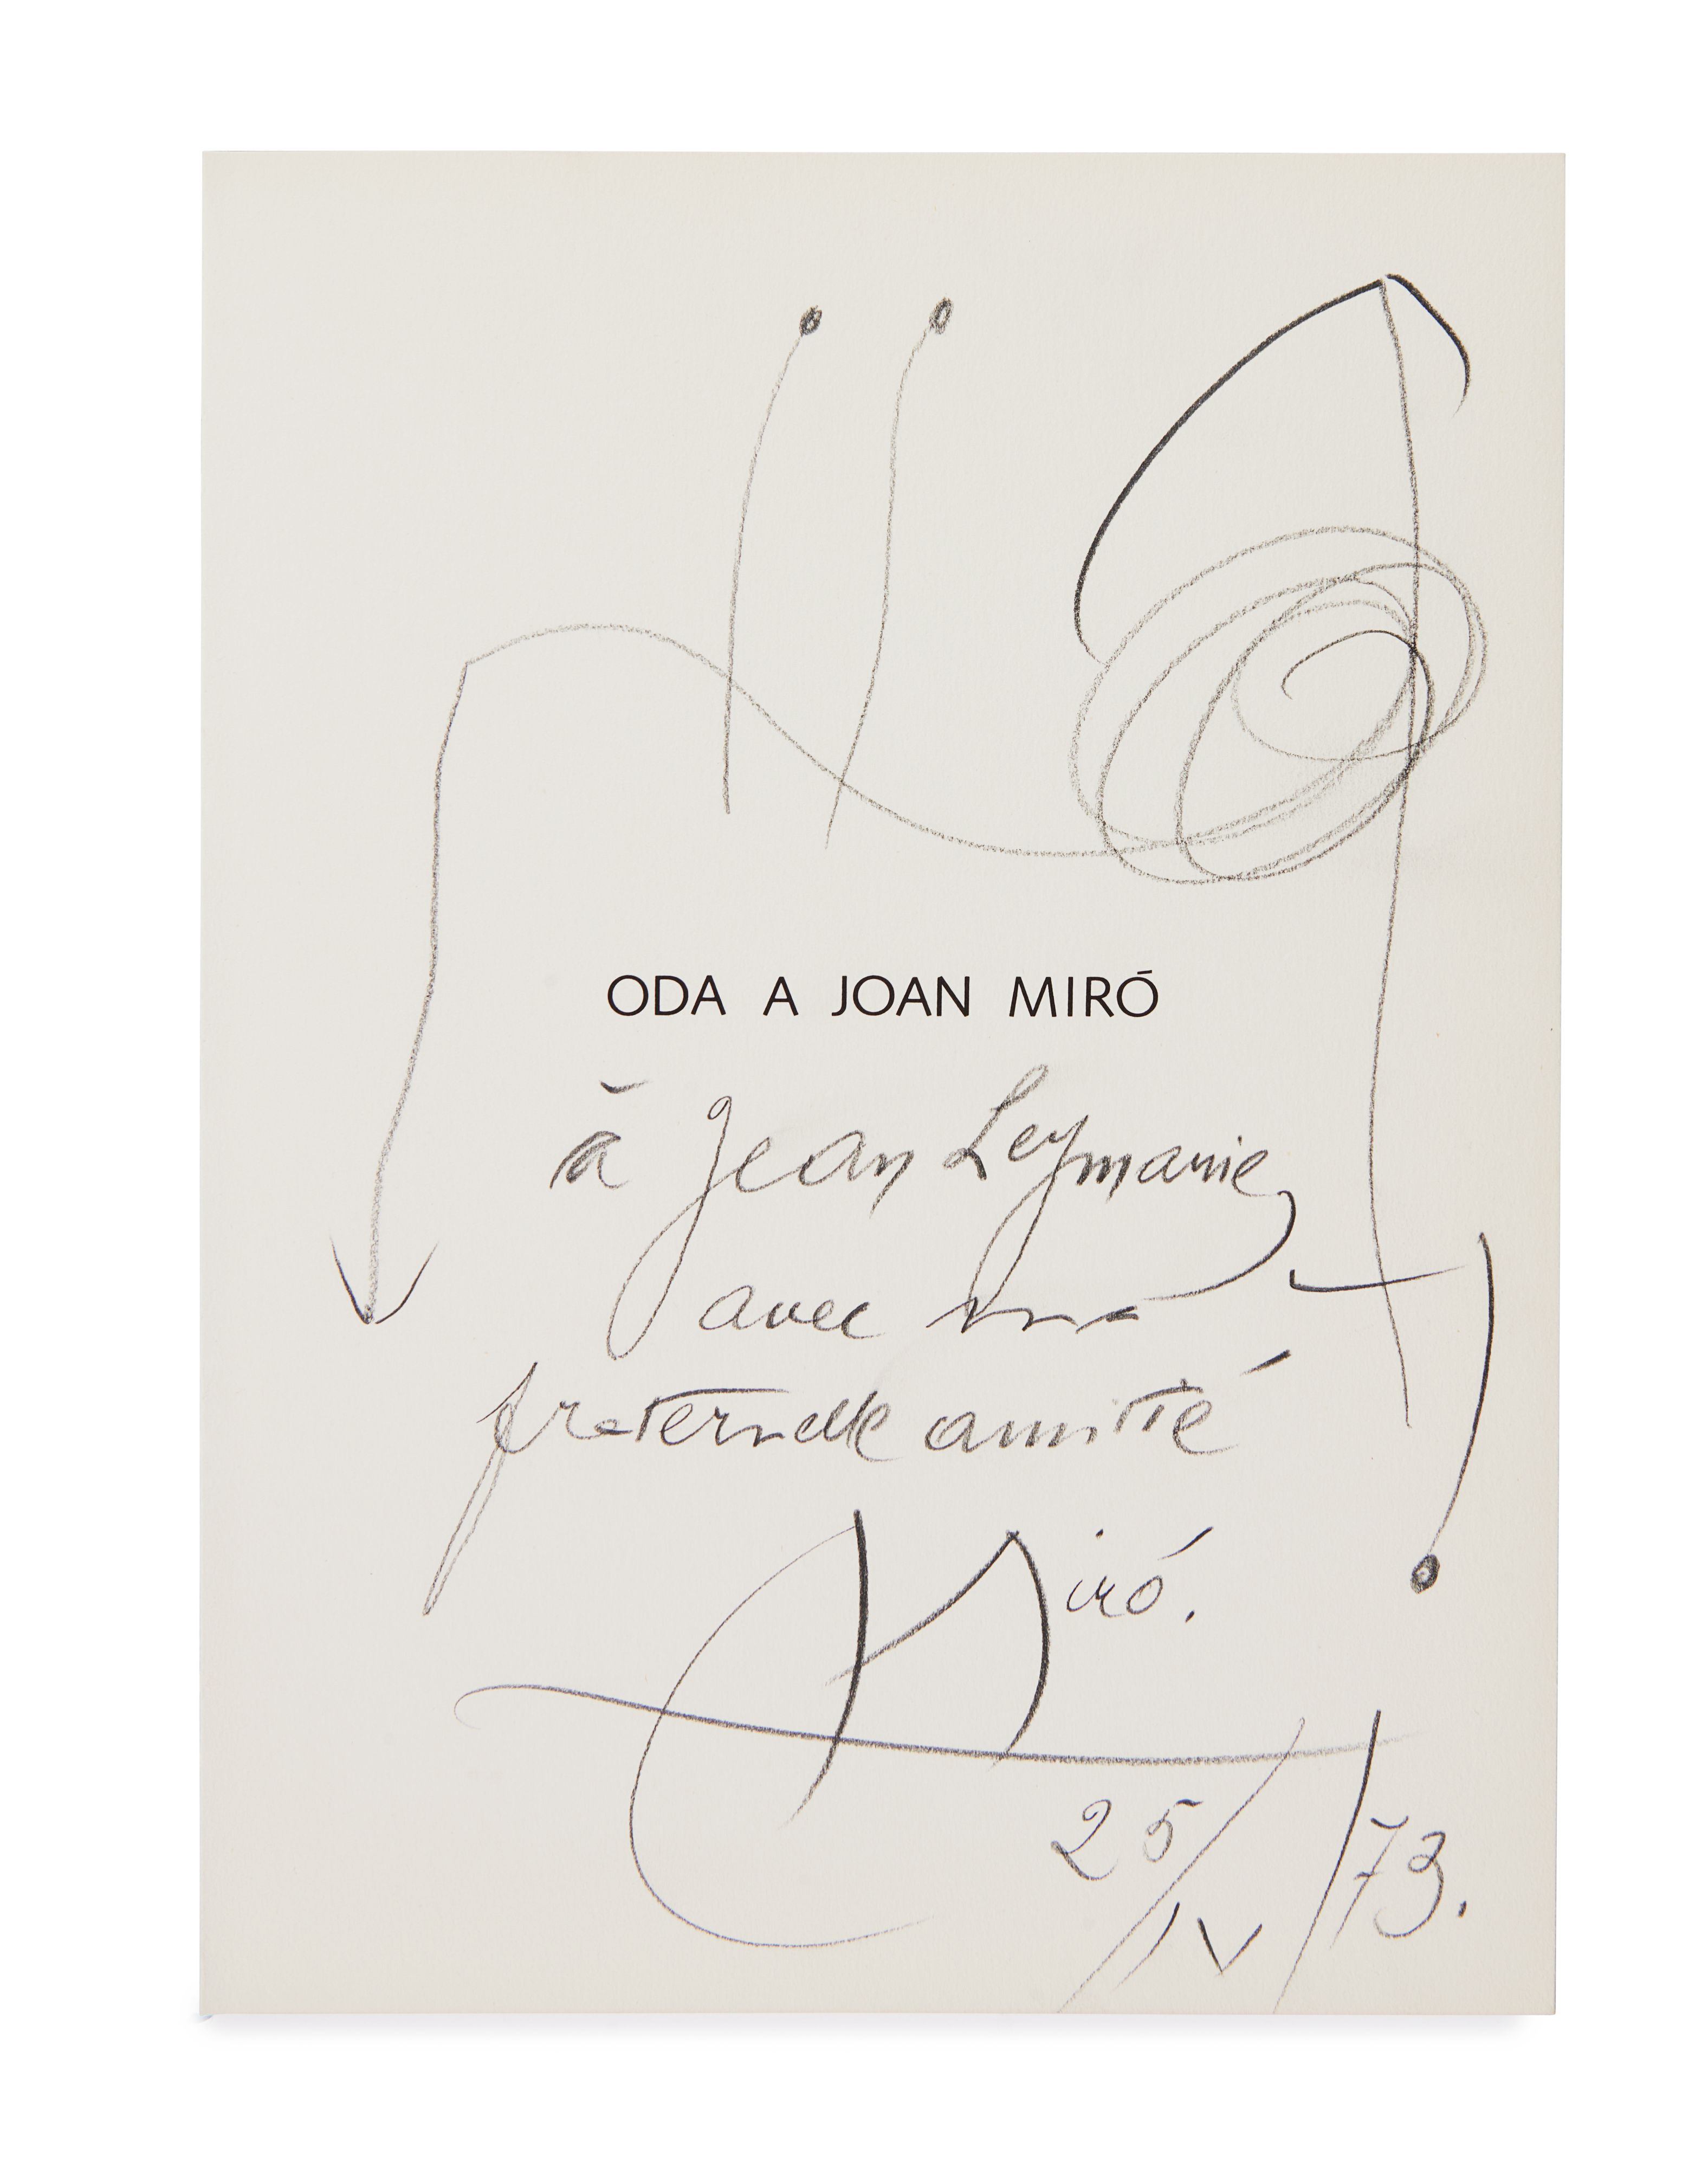 ODA A JOAN MIRÓ
à Jean Leymarie,
avec ma
fraternelle amitié
Miró.
25/IV/73.